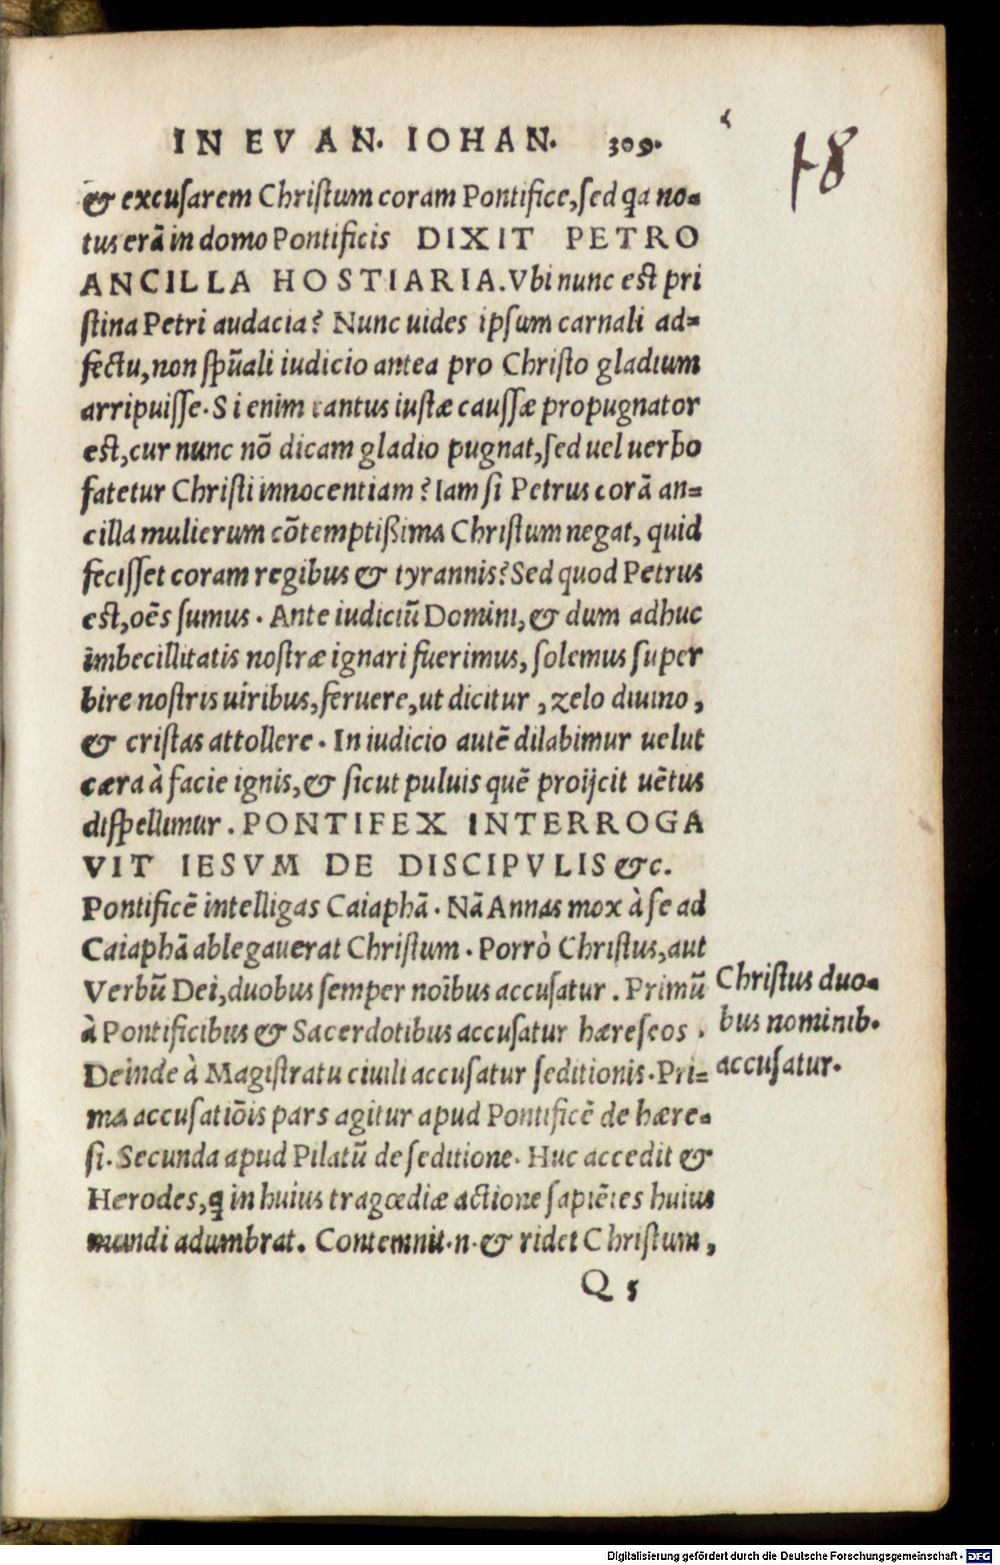 IN EVAN. IOHAN. 309.
18
& excusarem Christum coram Pontifice, sed qa no-
tus erã in domo Pontificis DIXIT PETRO
ANCILLA HOSTIARIA. Vbi nunc est pri
stina Petri audacia? Nunc uides ipsum carnali ad-
fectu, non spũali iudicio antea pro Christo gladium
arripuisse. Si enim tantus iustæ caussæ propugnator
est, cur nunc nõ dicam gladio pugnat, sed uel uerbo
fatetur Christi innocentiam? Iam si Petrus corã an-
cilla mulierum cõtemptißima Christum negat, quid
fecisset coram regibus & tyrannis? Sed quod Petrus
est, oẽs sumus. Ante iudiciũ Domini, & dum adhuc
imbecillitatis nostræ ignari fuerimus, solemus super
bire nostris uiribus, feruere, ut dicitur, zelo diuino,
& cristas attollere. In iudicio autẽ dilabimur uelut
cæra à facie ignis, & sicut puluis quẽ proijcit uẽtus
dispellimur. PONTIFEX INTERROGA
VIT IESVM DE DISCIPVLIS &c.
Pontificẽ intelligas Caiaphã. Nã Annas mox à se ad
Caiaphã ablegauerat Christum. Porrò Christus, aut
Verbũ Dei, duobus semper noĩbus accusatur. Primũ
à Pontificibus & Sacerdotibus accusatur hæreseos.
Deinde à Magistratu ciuili accusatur seditionis. Pri-
ma accusatiõis pars agitur apud Pontificẽ de hære-
si. Secunda apud Pilatũ de seditione. Huc accedit &
Herodes, q in huius tragœdiæ actione sapiẽtes huius
mundi adumbrat. Contemnit.n. & ridet Christum,
Christus duo-
bus nominib.
accusatur.
Q 5
Digitalisierung gefördert durch die Deutsche Forschungsgemeinschaft - DFG